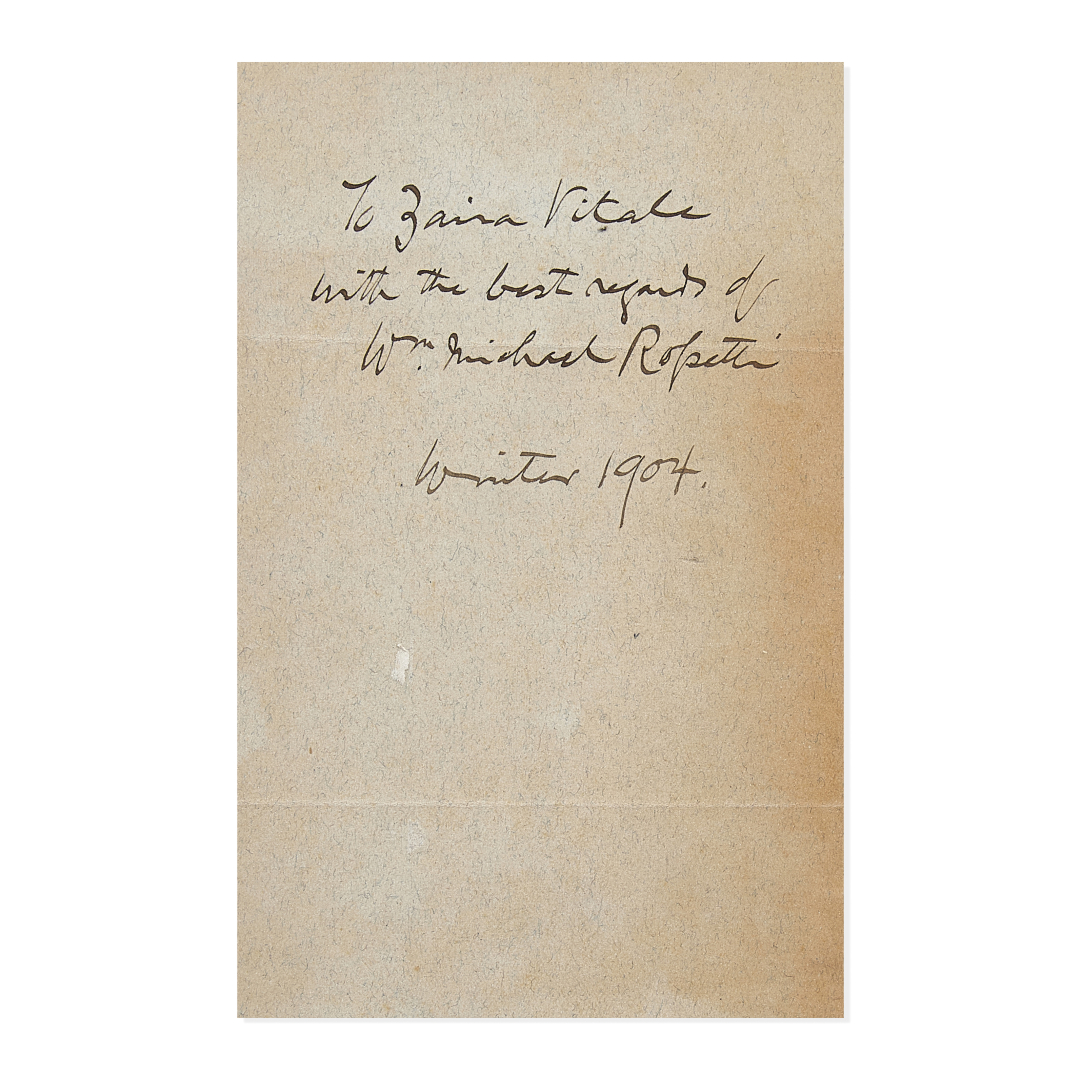 To Zaira Vitale
with the best regards of
Wm. Michael Roſsetti
Winter 1904.